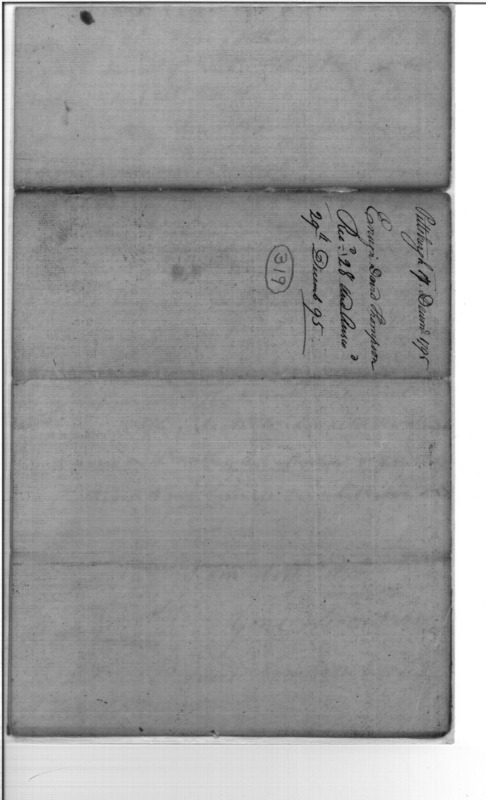 Pittsburgh 19 Decemr 1795
Ensign David Thompson
Recd. 28 and Answd
29th Decemb 95.
319